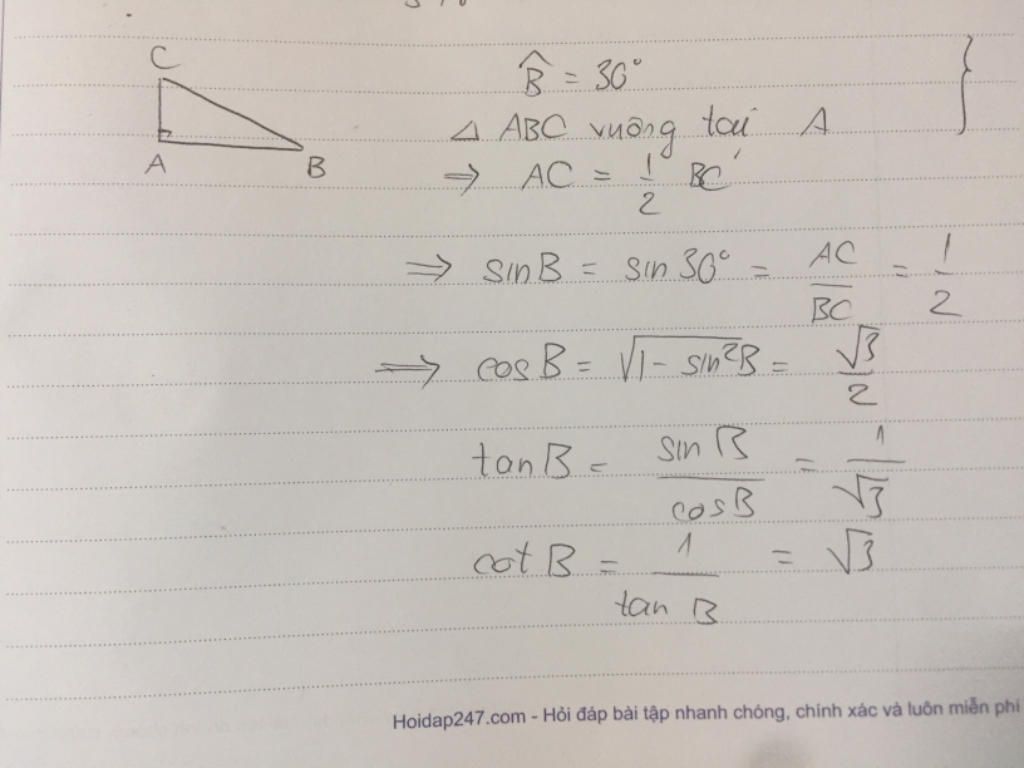 C
A
B
B̂ = 30°
△ ABC vuông tại A
⇒ AC = 1/2 BC
⇒ sinB = sin 30° = AC/BC = 1/2
⇒ cosB = √(1 - sin²B) = √3/2
tanB = sin B/cosB = 1/√3
cot B = 1/tan B = √3
Hoidap247.com - Hỏi đáp bài tập nhanh chóng, chính xác và luôn miễn phí